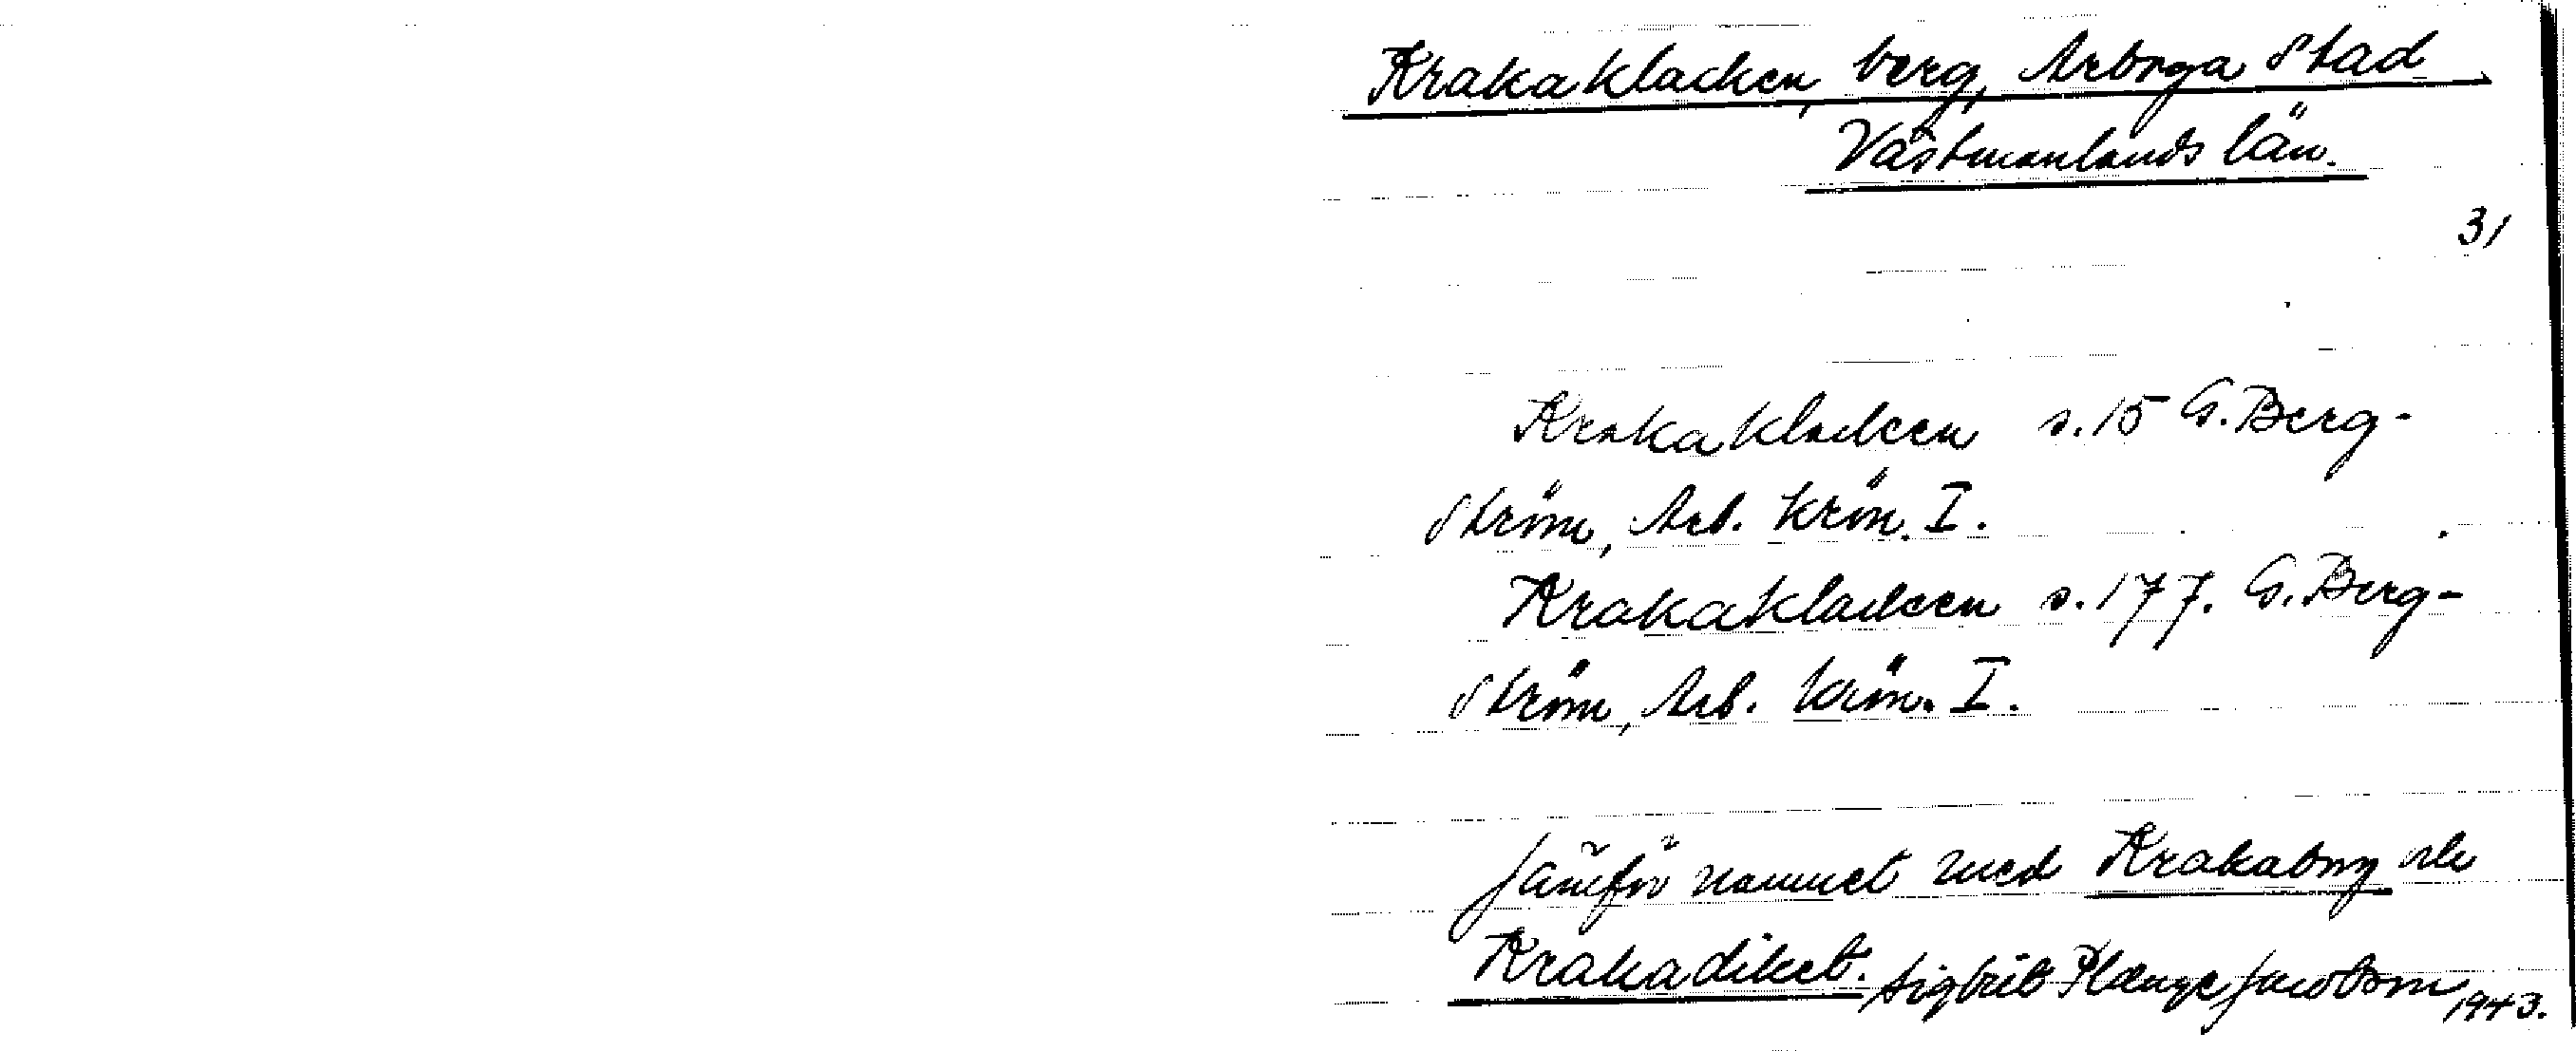 Krakaklacken, berg, Arboga stad
Västmanlands län.
31
Krakaklacken s. 15 G. Berg-
ström, Arb. krön. I.
Krakaklacken s. 177. G. Berg-
ström, Arb. krön. I.
Jämför namnet med Krakaborg och
Krakadiket. Sigbrit Plænge Jacobson 1943.